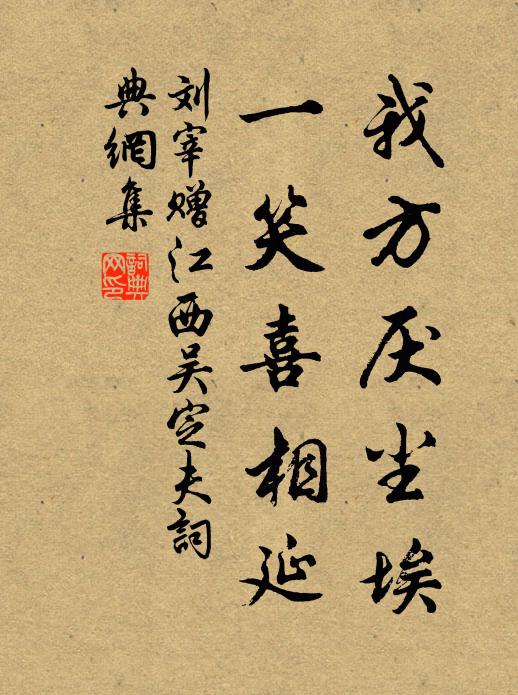 我方厌尘埃
一笑喜相延
刘宰赠江西吴定夫詞
典網集
詞典
网印